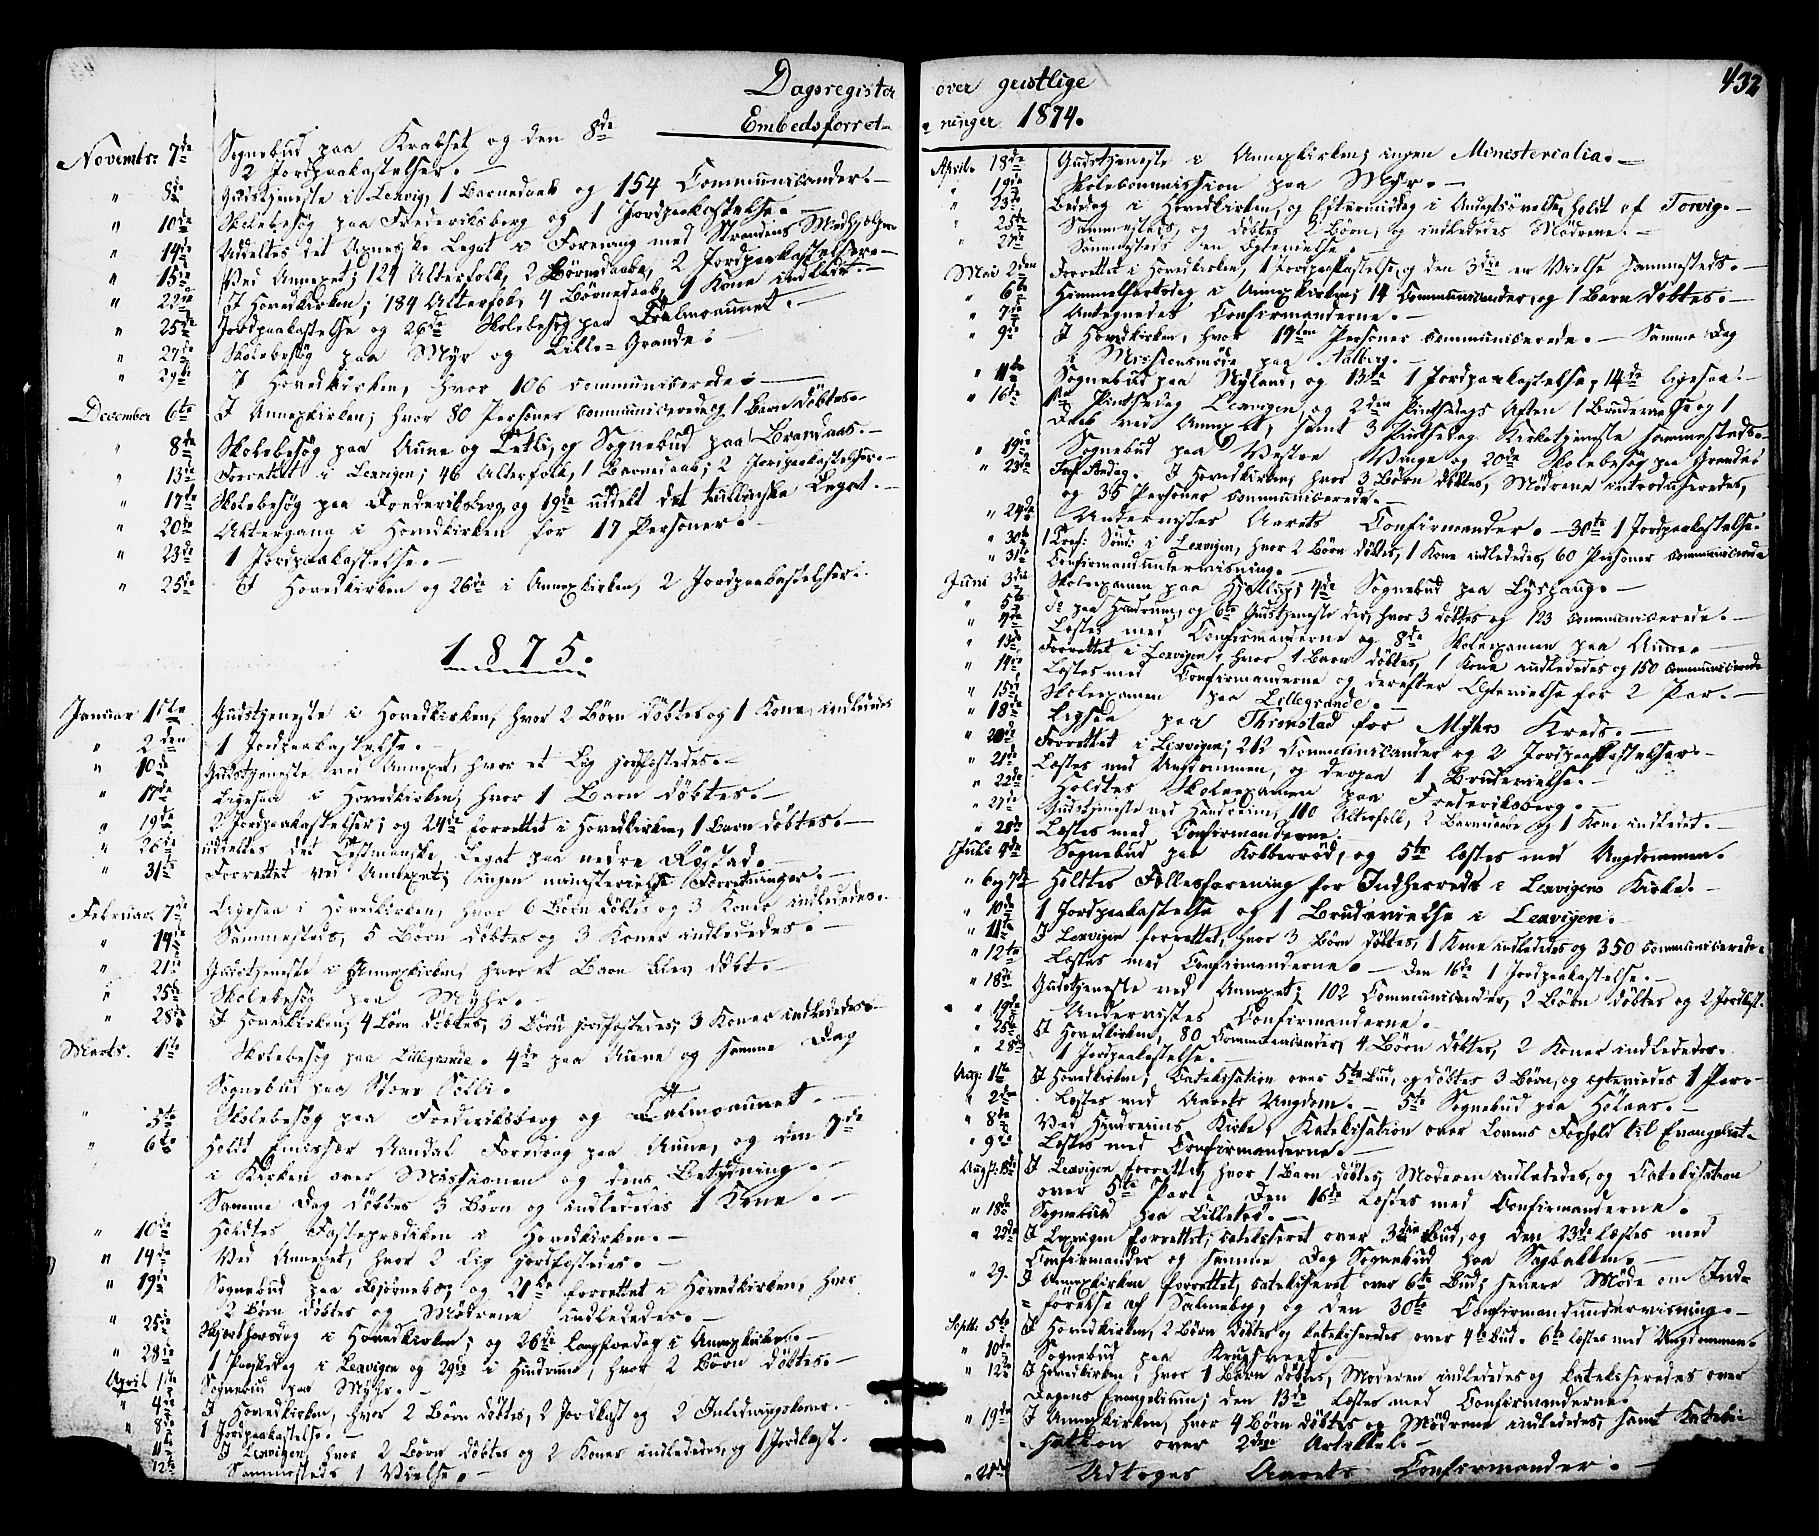 Dagsregister over geistlige
Embedsforret-
ninger 1874.
432
Novembr. 7de Sognebud paa Krabset og den 8de
2 Jordpaakastelser.
" 8de Gudstjeneste i Lexvig, 1 Barnedaab og 154 Communicander.
" 10de Skolebesøg paa Frederiksberg og 1 Jordpaakastelse.
" 14de Uddeltes det Legat i Forening med Strandens Medhjælpere
" 15de Ved Annexet; 124 Alterfolk, 2 Børnedaab, 2 Jordpaakastelser.
" 22de I Hovedkirken; 184 Alterfolk, 4 Børnedaab, 1 Kone indledt.
" 25de Jordpaakastelse og 26de Skolebesøg paa Dalmoaunet.
" 27de Skolebesøg paa Myr og Lille-Grande.
" 29de I Hovedkirken, hvor 106 communicerede.
December 6te I Annexkirken; hvor 80 Personer communicerede og 1 Barn døbtes.
" 8de Skolebesøg paa Aune og Letli, og Sognebud paa Brandaas.
" 13de Forrettet i Lexvigen; 46 Alterfolk, 1 Barnedaab; 2 Jordpaakastelser.
" 17de Skolebesøg paa Frederiksberg og 19de uddelt det tullinske Legat.
" 20de Altergang i Hovedkirken for 17 Personer.
" 23de 1 Jordpaakastelse.
" 25de I Hovedkirken og 26de i Annexkirken, 2 Jordpaakastelser.
1875.
Januar 1ste Gudstjeneste i Hovedkirken, hvor 2 Børn døbtes og 1 Kone indledes
" 2den 1 Jordpaakastelse.
" 10de Gudstjeneste ved Annexet, hvor et Lig jordfæstedes.
" 17de Ligesaa i Hovedkirken, hvor 1 Barn døbtes.
" 19de 2 Jordpaakastelser; og 24de forrettet i Hovedkirken, 1 Barn døbtes.
" 26de uddeltes det Legat paa nedre Røstad.
" 31te Forrettet ved Annexet; ingen ministerielle Forretninger.
Februar 7de Ligesaa i Hovedkirken, hvor 6 Børn døbtes og 3 Koner indlededes.
" 14de Sammesteds, 5 Børn døbtes og 3 Koner indlededes.
" 21de Gudstjeneste i Annexkirken, hvor et Barn blev døbt.
" 25de Skolebesøg paa Myhr.
" 28de I Hovedkirken, 4 Børn døbtes, 3 Børn jordfæstedes, 3 Koner indlededes.
Marts. 1ste Skolebesøg paa Lillegrande. 4de paa Aune og samme Dag
Sognebud paa Store Solli.
" 5te Skolebesøg paa Frederiksberg og Dalmoaunet.
" 6te Holdt Emissær Aandal Foredrag paa Aune, og den 7de
i Kirken over Missionen og dens Betydning.
Samme Dag døbtes 3 Børn og indledes 1 Kone.
" 10de Holdtes Fasteprædiken i Hovedkirken.
" 14de Ved Annexet, hvor 2 Lig jordfæstedes.
" 19de Sognebud paa Bjørnebo, og 21de forrettet i Hovedkirken, hvor
2 Børn døbtes og Mødrene indlededes.
" 25de Skjærthorsdag i Hovedkirken; og 26de Langfredag i Annexkirken.
" 28de 1 Paaskedag i Lexvigen og 29de i Hindrum, hvor 2 Børn døbtes.
April 1ste Sognebud paa Myhr.
" 4de I Hovedkirken, hvor 2 Børn døbtes, 2 Jordkast og 2 Indledningskoner.
" 8de 1 Jordpaakastelse.
11te I Lexvigen, hvor 2 Børn døbtes og 2 Koner indlededes, og 1 Jordkast.
12te Sammesteds 1 Vielse.
April 18de Gudstjeneste i Annexkirken; ingen Ministerialia.
" 19de Skolecommission paa Myr.
" 23de Bededag i Hovedkirken, og Eftermiddag i Andagtsøvelse, holdt af Torvig.
" 25de Sammesteds, og døbtes 2 Børn, og indlededes Mødrene.
" 27de Sammesteds en Ægtevielse.
Mai 2den Forrettet i Hovedkirken, 1 Jordpaakastelse, og den 3die en Vielse sammesteds.
" 6te Himmelfartsdag i Annexkirken; 14 Communicander, og 1 Barn døbtes.
" 7de Antegnedes Confirmanderne.
" 9de I Hovedkirken, hvor 19ten Personer communicerede. Samme Dag
Missionsmøde paa Aalberg.
" 11te Sognebud paa Nyland, og 13de 1 Jordpaakastelse, 14de ligesaa.
" 16de 1ste Pintsedag Lexvigen, og 2den Pintsedags Aften 1 Brudevielse og 1
Daab ved Annexet, samt 3 Pintsedag Kirketjeneste sammesteds.
" 19de Sognebud paa Vestre Vinge og 20de Skolebesøg paa Grande
" 23de Tref. Søndag. I Hovedkirken, hvor 3 Børn døbtes, Mødrene introduceredes,
og 35 Personer communicerede.
" 24de Undervistes Aarets Confirmander. 30te 1 Jordpaakastelse.
" 30te 1 Tref: Sønd: i Lexvigen, hvor 2 Børn døbtes, 1 Kone indlededes, 60 Personer communicerede
" 31te Confirmandundervisning.
Juni 3die Skoleexamen paa Hjellup; 4de Sognebud paa Lyshaug.
" 5te Do paa Hindrum, og 6te Gudstjeneste der, hvor 3 døbtes og 123 communicerede.
" 7de Læstes med Confirmanderne og 8de Skoleexamen paa Aune.
" 13de Forrettet i Lexvigen, hvor 1 Barn døbtes, 1 Kone indlededes og 150 communicerede
" 14de Læstes med Confirmanderne og derefter Ægtevielse for 2 Par.
" 15de Skoleexamen paa Lillegrande.
" 18de Ligesaa paa Thronstad for Myhrs Kreds.
" 20de Forrettet i Lexvigen; 212 Communicander og 2 Jordpaakastelser.
" 21de Læstes med Ungdommen, og derpaa 1 Brudevielse.
" 22de Holdtes Skoleexamen paa Frederiksberg.
" 27de Gudstjeneste ved Hindreim, 110 Alterfolk, 2 Barnedaab og 1 Kone indledet.
" 28de Læstes med Confirmanderne.
Juli 4de Sognebud paa Kobberrød, og 5te læstes med Ungdommen.
" 6 og 7de Holdtes Fællesforening for Indherred i Lexvigens Kirke.
" 10de 1 Jordpaakastelse og 1 Brudevielse i Lexvigen.
" 11te I Lexvigen forrettet, hvor 3 Børn døbtes, 1 Kone indlededes og 350 communicerede.
" 12te Læstes med Confirmanderne. Den 16de 1 Jordpaakastelse.
" 18de Gudstjeneste ved Annexet; 102 Communicander, 2 Børn døbtes og 2 Jordkast.
" 19de Undervistes Confirmanderne.
" 25de I Hovedkirken, 80 Communicander, 4 Børn døbtes, 2 Koner indlededes.
" 28de 1 Jordpaakastelse.
Aug: 1ste I Hovedkirken; Katekisation over 5te Bud, og døbtes 3 Børn, og ægteviedes 1 Par.
" 2den Læstes med Aarets Ungdom. 5te Sognebud paa Hølaas.
" 8de Ved Hindreims Kirke, Katekisation over Lovens Forhold til Evangeliet.
" 9de Læstes med Confirmanderne.
Augst: 15de I Lexvigen forrettet, hvor 1 Barn døbtes, Moderen indlededes, og Catekisation
over 5te Part. Den 16de Læstes med Confirmanderne.
" 18de Sognebud paa Lillerød.
" 22de I Lexvigen forrettet; catekiseret over 3die Bud, og den 23de læstes med
Confirmander og samme Dag Sognebud paa Sagbakken.
" 29. I Annexkirken forrettet, catekiseret over 6te Bud; senere Møde om Ind-
førelse af Salmebog, og den 30te Confirmandundervisning.
Septb: 5te I Hovedkirken, 2 Børn døbtes og katekiseredes over 4te Bud. 6te læstes med Ungdommen.
" 10de Sognebud paa
" 12te I Hovedkirken, hvor 1 Barn døbtes, Moderen indlededes og katekiseredes over
Dagens Evangelium; den 13de læstes med Confirmanderne.
" 19de I Annexkirken, hvor 4 Børn døbtes og Mødrene indlededes, samt Kateki-
sation over 2den Artikkel.
" 21de Udtoges Aarets Confirmander.